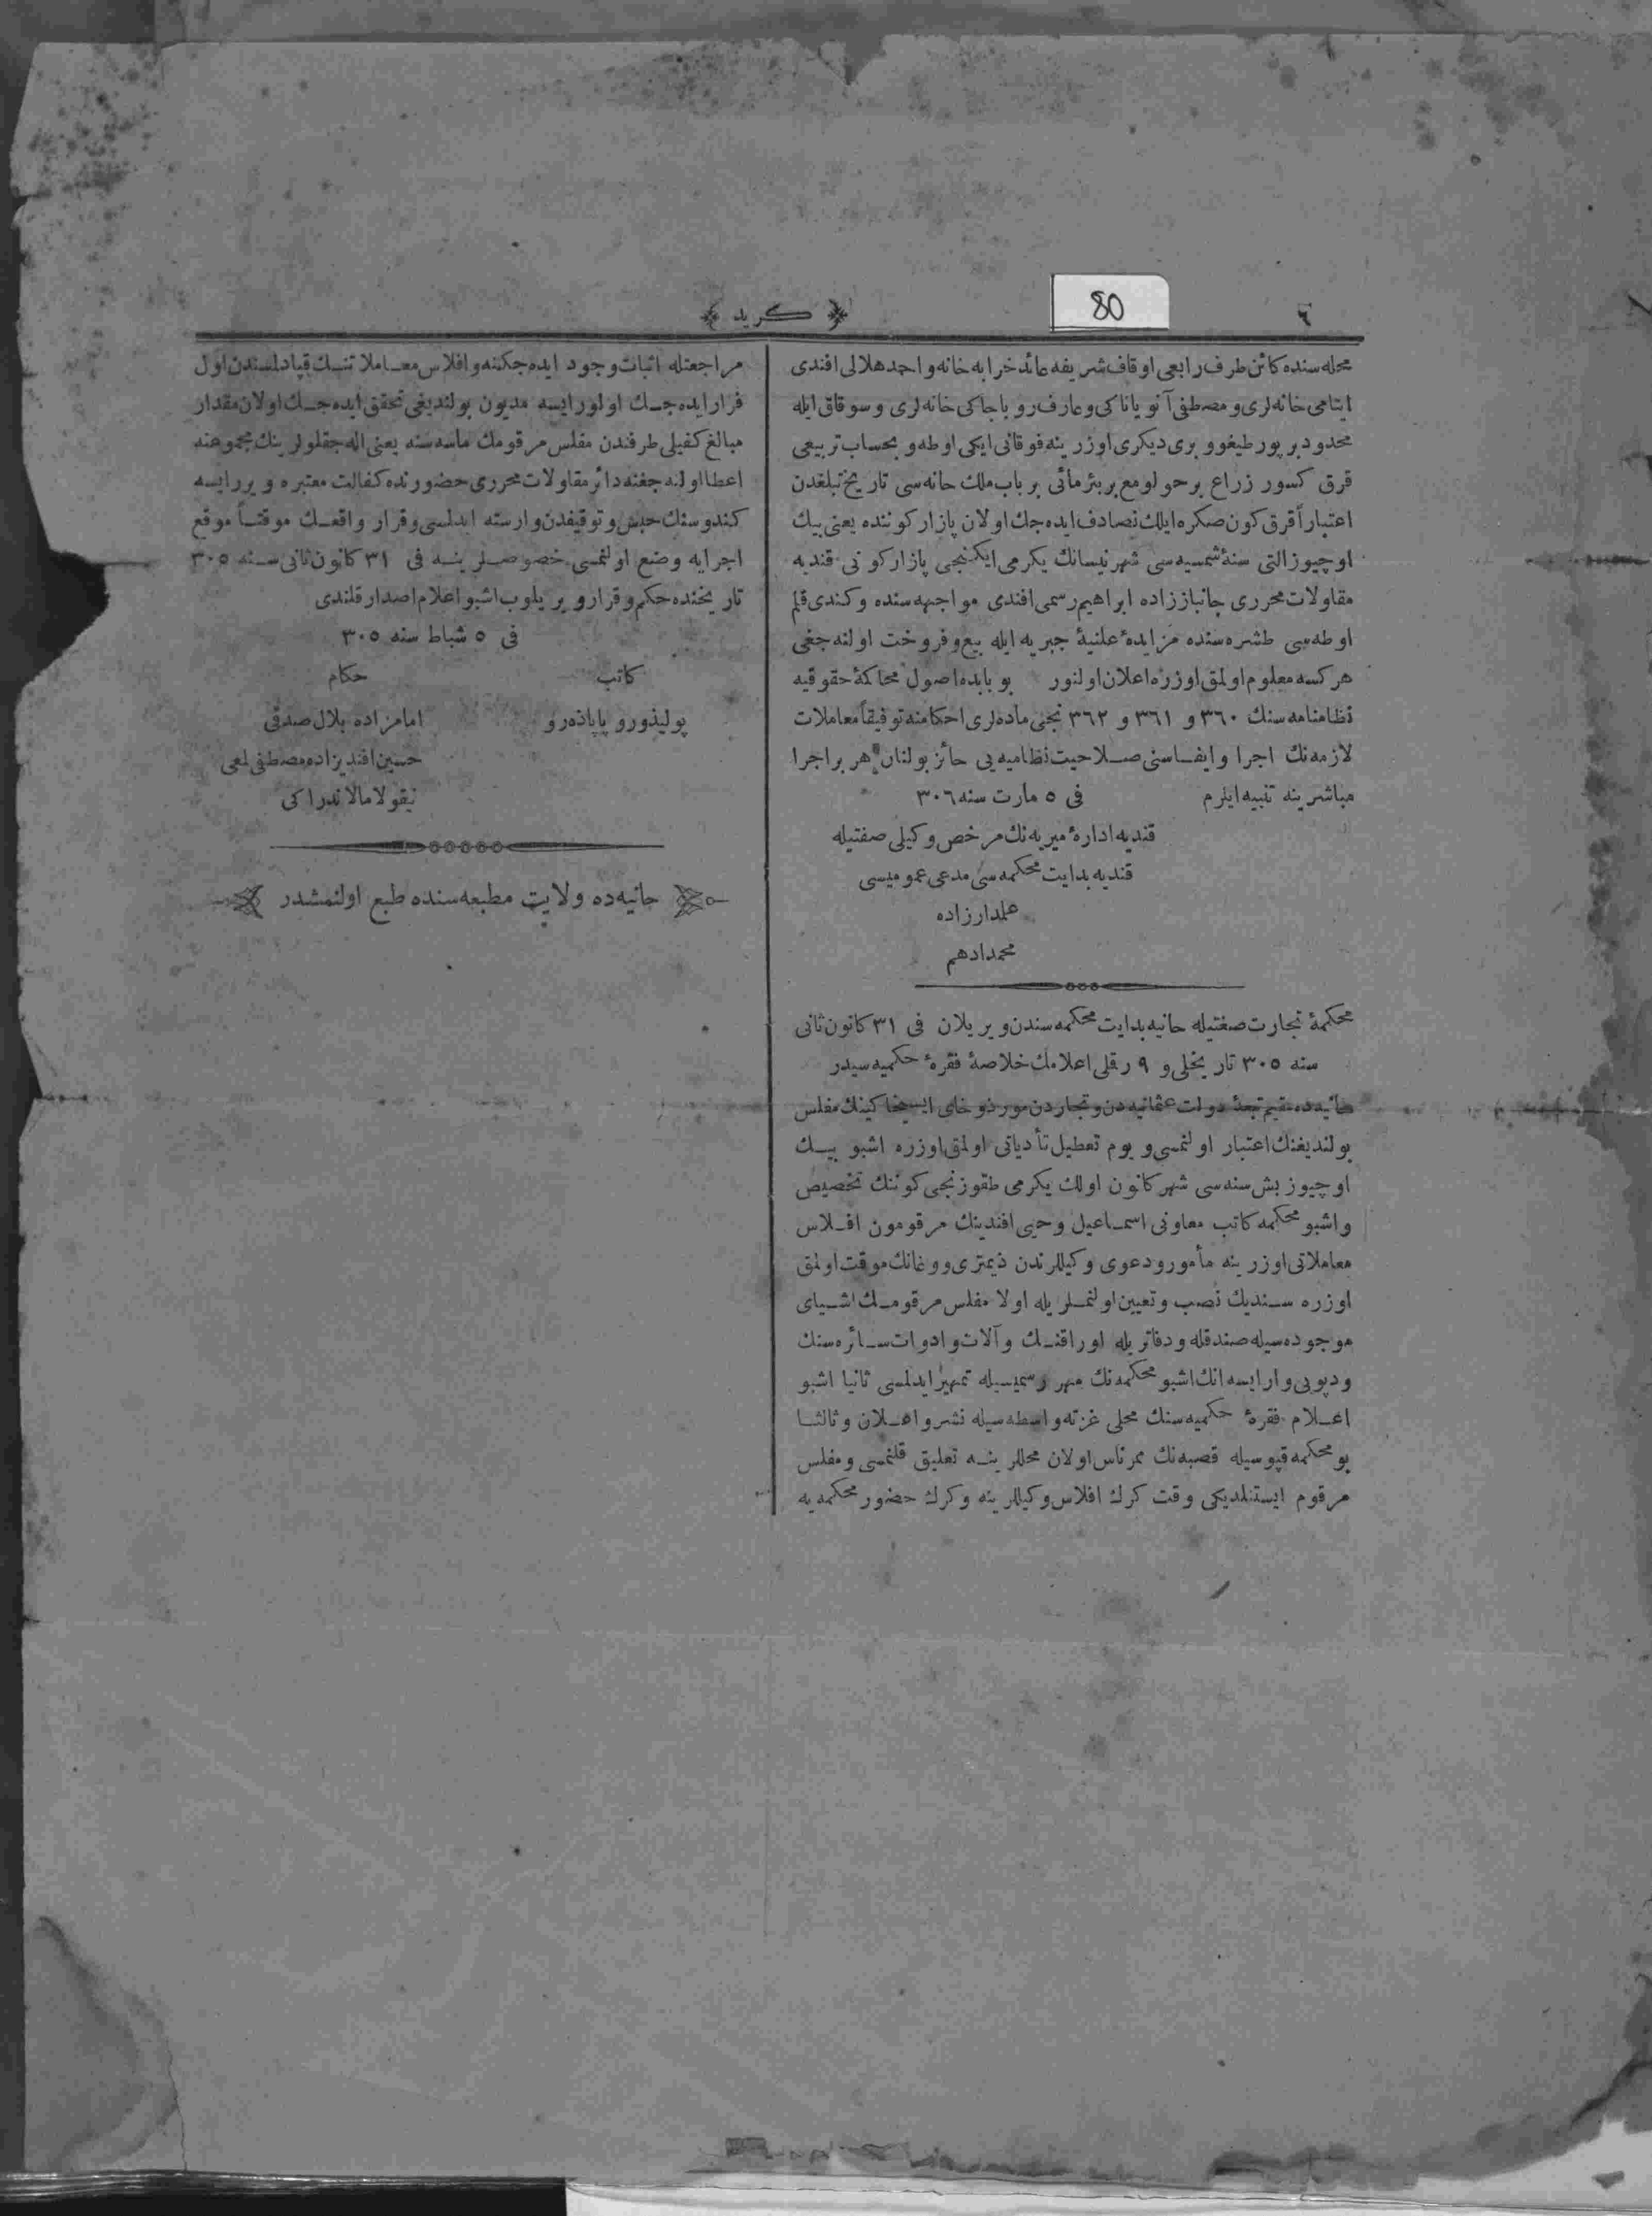 ٦
80
﴿ كريد ﴾
محله سنده كائن طرف رابعى اوقاف شريفه عائد خرابه خانه و احمد هلالى افندى
ايتامى خانه لرى و مصطفى آنو ياناكى و عارف رو باجاكى خانه لرى و سوقاق ايله
محدود بر پورطيغو و برى ديكرى اوزرينه فوقانى ايكى اوطه و بحساب تربيعى
قرق كسور زراع بر حولو مع بر بئر مائى بر باب ملك خانه سى تاريخ تبلغدن
اعتباراً قرق كون صكره ايلك تصادف ايده جك اولان پازار كوننده يعنى بيك
اوچيوز التى سنۀ شمسيه سى شهر نيسانك يكرمى ايكنجى پازار كونى قنديه
مقاولات محررى چانباززاده ابراهيم رسمى افندى مواجهه سنده و كندى قلم
اوطه سى طشره سنده مزايدۀ علنيۀ جبريه ايله بيع و فروخت اولنه جغى
هر كسه معلوم اولمق اوزره اعلان اولنور بو بابده اصول محاكمۀ حقوقيه
نظامنامه سنك ٣٦٠ و ٣٦١ و ٣٦٢ نجى ماده لرى احكامنه توفيقاً معاملات
لازمه نك اجرا و ايفاسنى صلاحيت نظاميه يى حائز بولنان هر بر اجرا
مباشرينه تنبيه ايلرم فى ٥ مارت سنه ٣٠٦
قنديه ادارۀ ميريه نك مرخص وكيلى صفتيله
قنديه بدايت محكمه سى مدعى عموميسى
علمدارزاده
محمد ادهم
محكمۀ تجارت صفتيله حانيه بدايت محكمه سندن ويريلان فى ٣١ كانون ثانى
سنه ٣٠٥ تاريخلى و ٩ رقملى اعلامك خلاصۀ فقرۀ حكميه سيدر
حانيه ده مقيم تبعۀ دولت عثمانيه دن و تجاردن مورذوخاى مفلس
بولنديغنك اعتبار اولنمسى و يوم تعطيل تأدياتى اولمق اوزره اشبو بيك
اوچيوز بش سنه سى شهر كانون اولك يكرمى طقوزنجى كوننك تخصيص
و اشبو محكمه كاتب معاونى اسماعيل وحيى افندينك مرقومون افلاس
معاملاتى اوزرينه مأمور و دعوى وكيللرندن ذيمترى ووغانك موقت اولمق
اوزره سنديك نصب و تعيين اولنملريله اولا مفلس مرقومك اشياى
موجوده سيله صندقله و دفاتريله اوراقنك و آلات و ادوات سائره سنك
و دپويى وار ايسه انك اشبو محكمه نك مهر رسميسيله تمهير ايدلمسى ثانيا اشبو
اعلام فقرۀ حكميه سنك محلى غزته واسطه سيله نشر و اعلان و ثالثا
بو محكمه قپوسيله قصبه نك ممر ناس اولان محللرينه تعليق قلنمسى و مفلس
مرقوم ايستنلديكى وقت كرك افلاس وكيللرينه و كرك حضور محكمه يه
مراجعتله اثبات وجود ايده جكنه و افلاس معاملاتنك قپادلمسندن اول
فرار ايده جك اولور ايسه مديون بولنديغى تحقق ايده جك اولان مقدار
مبالغ كفيلى طرفندن مفلس مرقومك ماسه سنه يعنى اله جقلولرينك مجموعنه
اعطا اولنه جغنه دائر مقاولات محررى حضورنده كفالت معتبره ويرر ايسه
كندوسنك حبس و توقيفدن وارسته ايدلمسى و قرار واقعك موقتاً موقع
اجرايه وضع اولنمسى خصوصلرينه فى ٣١ كانون ثانى سنه ٣٠٥
تاريخنده حكم و قرار ويريلوب اشبو اعلام اصدار قلندى
فى ٥ شباط سنه ٣٠٥
كاتب حكام
پوليذورو پاپاذه رو امامزاده بلال صدقى
حسين افنديزاده مصطفى لمعى
نيقولا مالاندراكى
حانيه ده ولايت مطبعه سنده طبع اولنمشدر